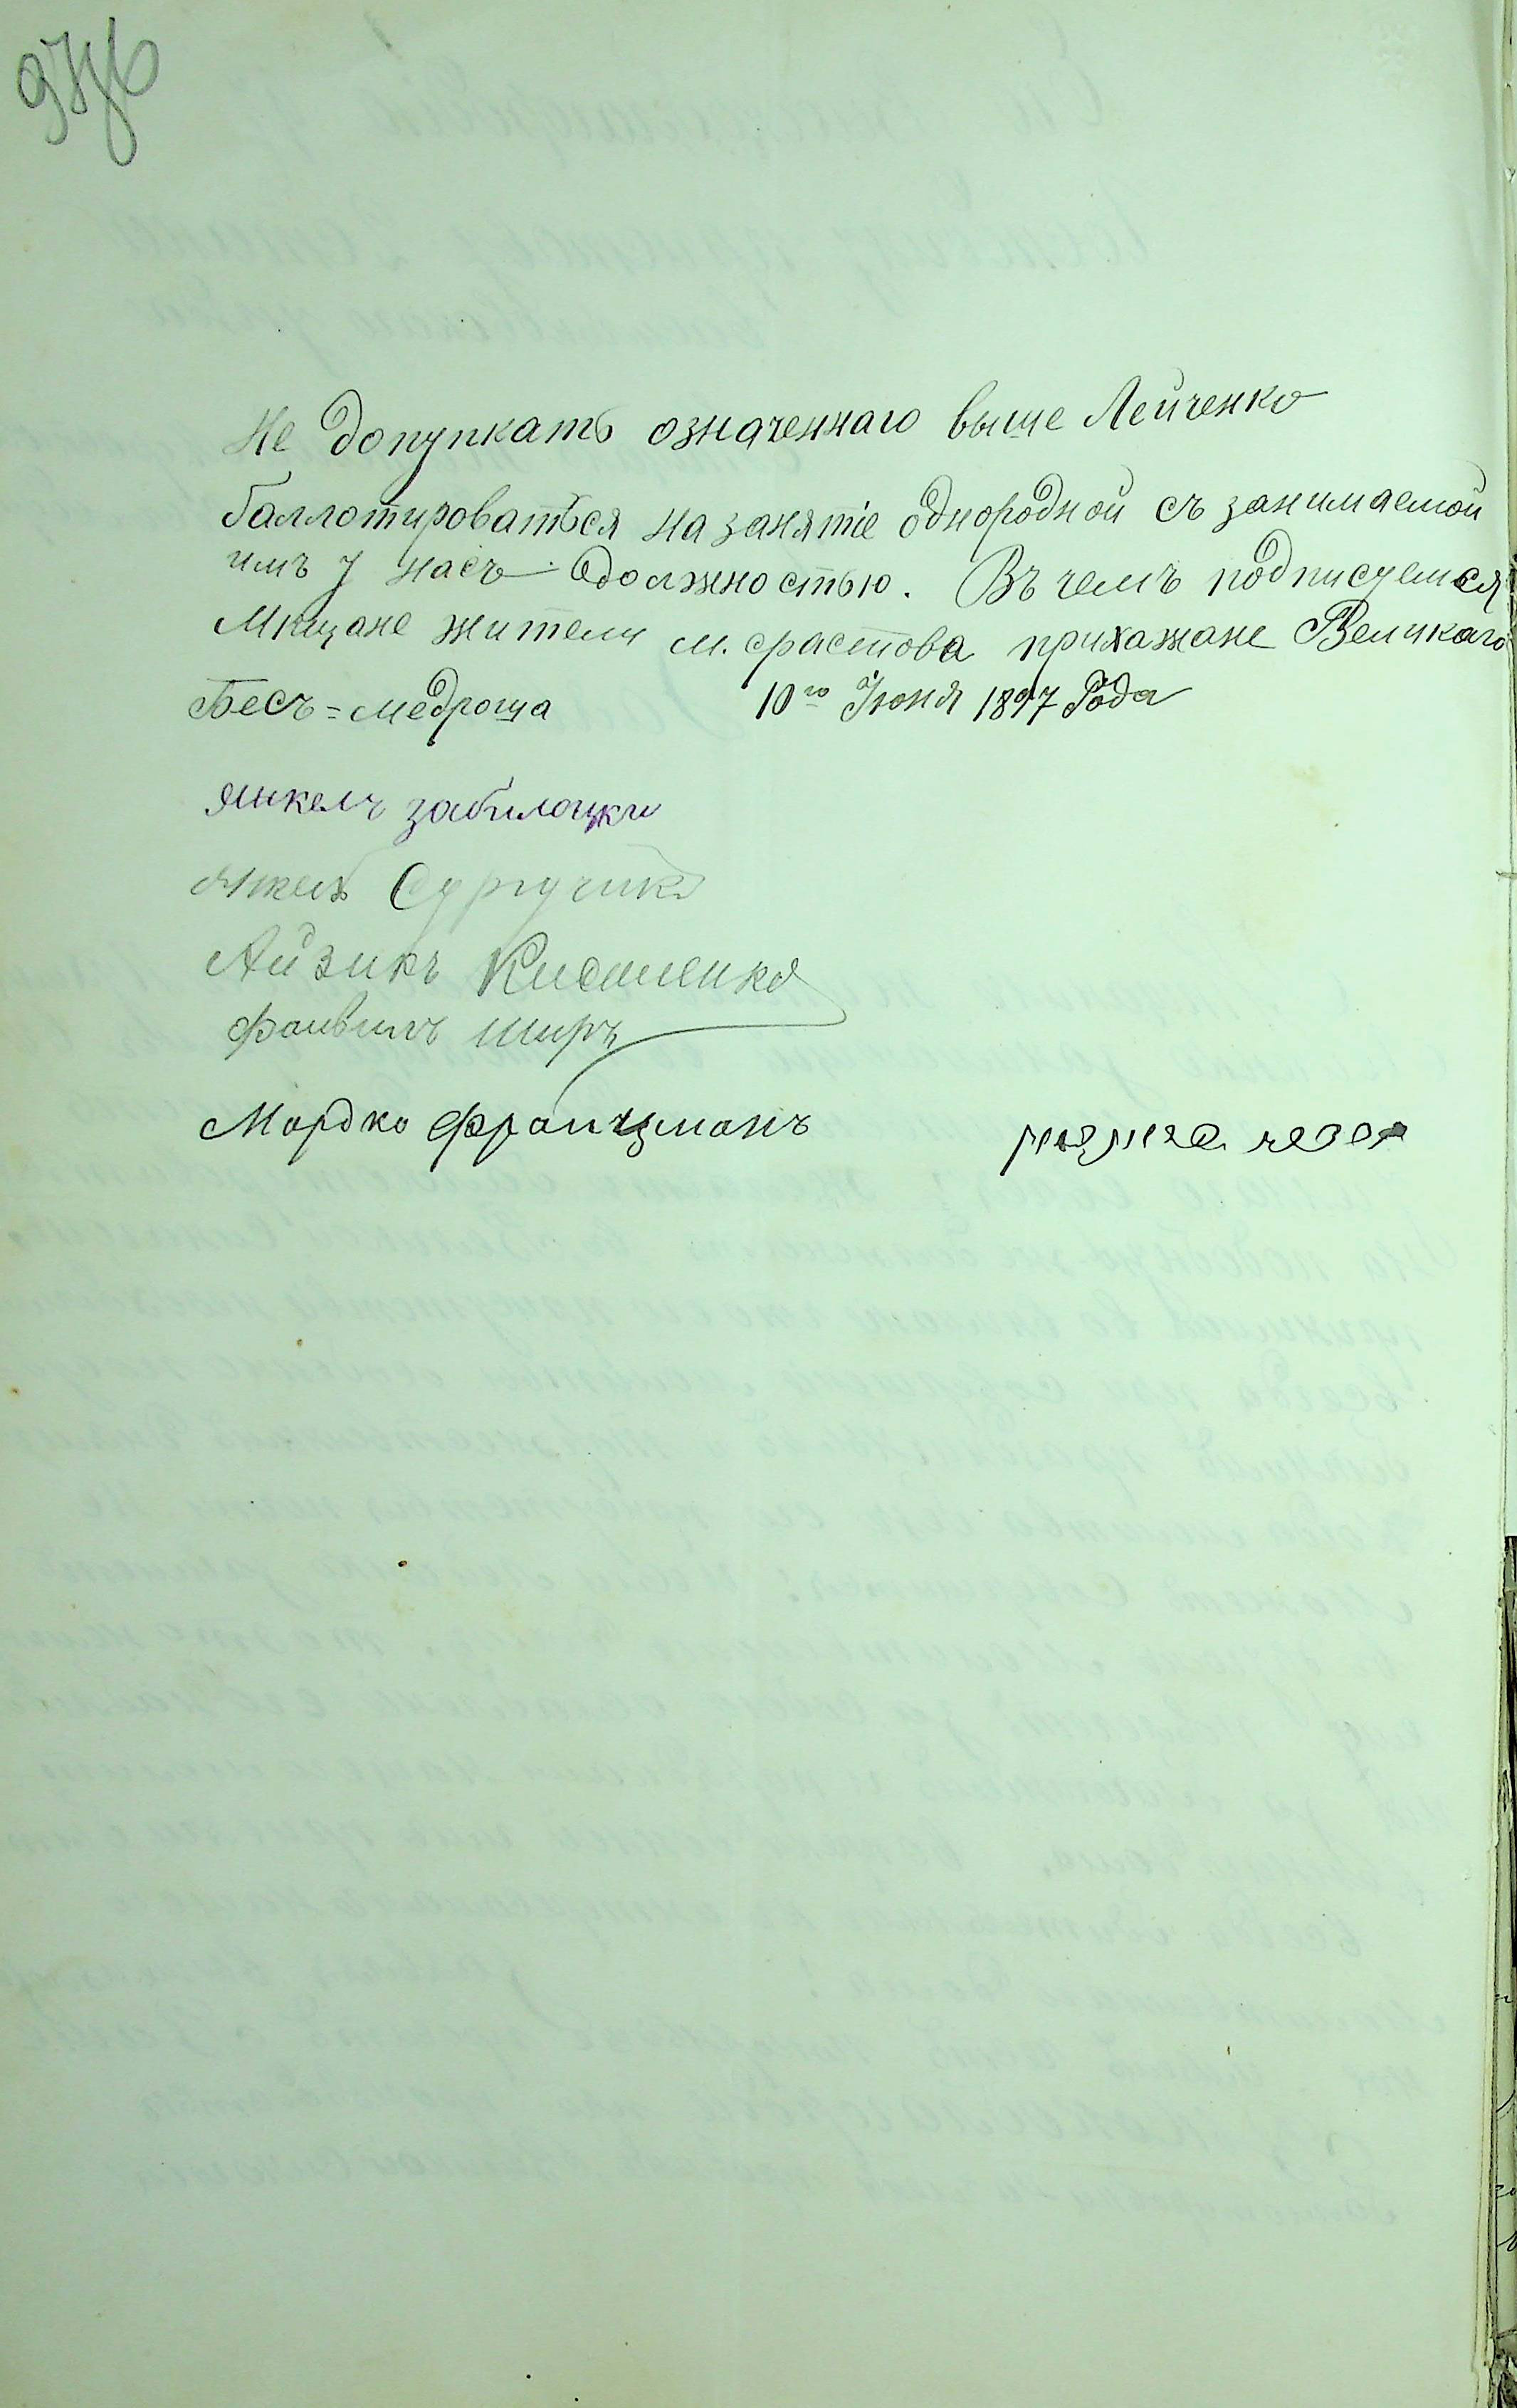 Не допупкать означеннаго выше Лейченко
баллотироваться на занятіе однородной съ занимаемой
имъ у насъ должностью. Въ чемъ подписуемся
Мѣщане жители м. Фастова прихажане Великаго
Бесъ=медроша 10го Іюня 1897 Года
Янкель забилоцки
Сургучикъ
Айзикъ
Фаивель Ширъ
Мордко Француманъ